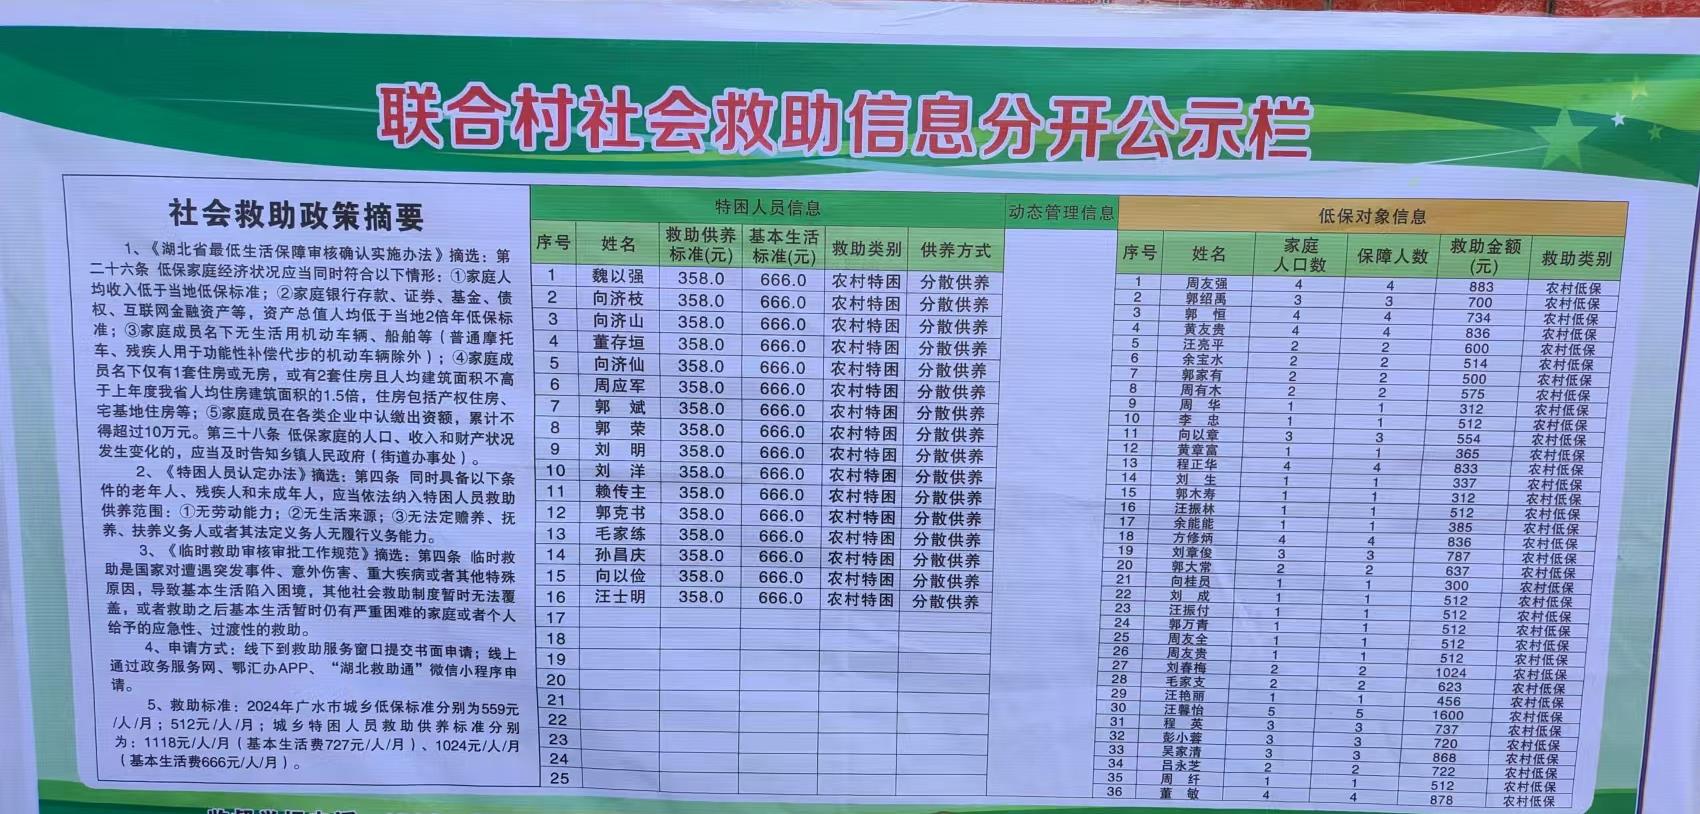 联合村社会救助信息分开公示栏
社会救助政策摘要
1、《湖北省最低生活保障审核确认实施办法》摘选：第
二十六条 低保家庭经济状况应当同时符合以下情形：①家庭人
均收入低于当地低保标准；②家庭银行存款、证券、基金、债
权、互联网金融资产等，资产总值人均低于当地2倍年低保标
准；③家庭成员名下无生活用机动车辆、船舶等（普通摩托
车、残疾人用于功能性补偿代步的机动车辆除外）；④家庭成
员名下仅有1套住房或无房，或有2套住房且人均建筑面积不高
于上年度我省人均住房建筑面积的1.5倍，住房包括产权住房、
宅基地住房等；⑤家庭成员在各类企业中认缴出资额，累计不
得超过10万元。第三十八条 低保家庭的人口、收入和财产状况
发生变化的，应当及时告知乡镇人民政府（街道办事处）。
2、《特困人员认定办法》摘选：第四条 同时具备以下条
件的老年人、残疾人和未成年人，应当依法纳入特困人员救助
供养范围：①无劳动能力；②无生活来源；③无法定赡养、抚
养、扶养义务人或者其法定义务人无履行义务能力。
3、《临时救助审核审批工作规范》摘选：第四条 临时救
助是国家对遭遇突发事件、意外伤害、重大疾病或者其他特殊
原因，导致基本生活陷入困境，其他社会救助制度暂时无法覆
盖，或者救助之后基本生活暂时仍有严重困难的家庭或者个人
给予的应急性、过渡性的救助。
4、申请方式：线下到救助服务窗口提交书面申请；线上
通过政务服务网、鄂汇办APP、“湖北救助通”微信小程序申
请。
5、救助标准：2024年广水市城乡低保标准分别为559元
/人/月；512元/人/月；城乡特困人员救助供养标准分别
为：1118元/人/月（基本生活费727元/人/月）、1024元/人/月
（基本生活费666元/人/月）。
特困人员信息
序号 姓名 救助供养标准(元) 基本生活标准(元) 救助类别 供养方式
1 魏以强 358.0 666.0 农村特困 分散供养
2 向济枝 358.0 666.0 农村特困 分散供养
3 向济山 358.0 666.0 农村特困 分散供养
4 董存垣 358.0 666.0 农村特困 分散供养
5 向济仙 358.0 666.0 农村特困 分散供养
6 周应军 358.0 666.0 农村特困 分散供养
7 郭 斌 358.0 666.0 农村特困 分散供养
8 郭 荣 358.0 666.0 农村特困 分散供养
9 刘 明 358.0 666.0 农村特困 分散供养
10 刘 洋 358.0 666.0 农村特困 分散供养
11 赖传主 358.0 666.0 农村特困 分散供养
12 郭克书 358.0 666.0 农村特困 分散供养
13 毛家练 358.0 666.0 农村特困 分散供养
14 孙昌庆 358.0 666.0 农村特困 分散供养
15 向以俭 358.0 666.0 农村特困 分散供养
16 汪士明 358.0 666.0 农村特困 分散供养
17
18
19
20
21
22
23
24
25
动态管理信息
低保对象信息
序号 姓名 家庭人口数 保障人数 救助金额(元) 救助类别
1 周友强 4 4 883 农村低保
2 郭绍禹 3 3 700 农村低保
3 郭 恒 4 4 734 农村低保
4 黄友贵 4 4 836 农村低保
5 汪亮平 2 2 600 农村低保
6 余宝水 2 2 514 农村低保
7 郭家有 2 2 500 农村低保
8 周有木 2 2 575 农村低保
9 周 华 1 1 312 农村低保
10 李 忠 1 1 512 农村低保
11 向以章 3 3 554 农村低保
12 黄章富 1 1 365 农村低保
13 程正华 4 4 833 农村低保
14 刘 生 1 1 337 农村低保
15 郭木寿 1 1 312 农村低保
16 汪振林 1 1 512 农村低保
17 余能能 1 1 385 农村低保
18 方修炳 4 4 836 农村低保
19 刘章俊 3 3 787 农村低保
20 郭大常 2 2 637 农村低保
21 向桂员 1 1 300 农村低保
22 刘 成 1 1 512 农村低保
23 汪振付 1 1 512 农村低保
24 郭万青 1 1 512 农村低保
25 周友全 1 1 512 农村低保
26 周友贵 1 1 512 农村低保
27 刘春梅 2 2 1024 农村低保
28 毛家支 2 2 623 农村低保
29 汪艳丽 1 1 456 农村低保
30 汪馨怡 5 5 1600 农村低保
31 程 英 3 3 737 农村低保
32 彭小蓉 3 3 720 农村低保
33 吴家清 3 3 868 农村低保
34 吕永芝 2 2 722 农村低保
35 周 纤 1 1 512 农村低保
36 董 敏 4 4 878 农村低保